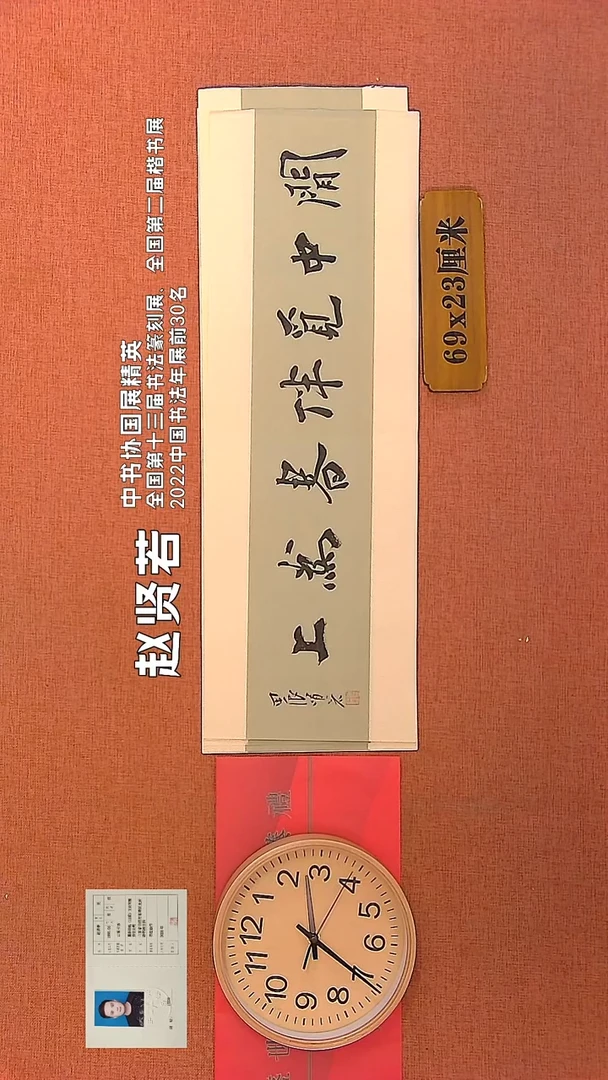 赵贤若
中书协国展精英
全国第十三届书法篆刻展、全国第二届楷书展
2022中国书法年展前30名
閒中覓伴書為上
69x23厘米
12
1
2
3
4
5
6
7
8
9
10
11
禮